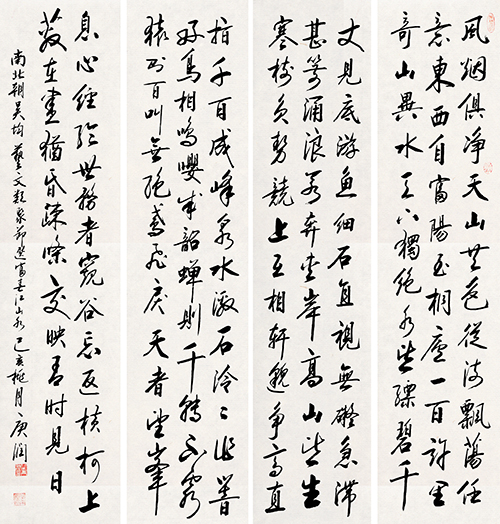 風烟俱净天山共色從流飄蕩任
意東西自富陽至桐廬一百許里
奇山異水天下獨絶水皆縹碧千
丈見底游魚細石直視無礙急湍
甚箭浪若奔夾岸高山皆生
寒樹負勢競上互相軒邈爭高直
指千百成峰泉水激石泠泠作響
好鳥相鳴嚶嚶成韻蟬則千轉不窮
猿則百叫無絶鳶飛戾天者望峯
息心經綸世務者窺谷忘返橫柯上
蔽在晝猶昏疎條交映有時見日
南北朝吴均藝文類聚節富春江山水己亥桃月庚润